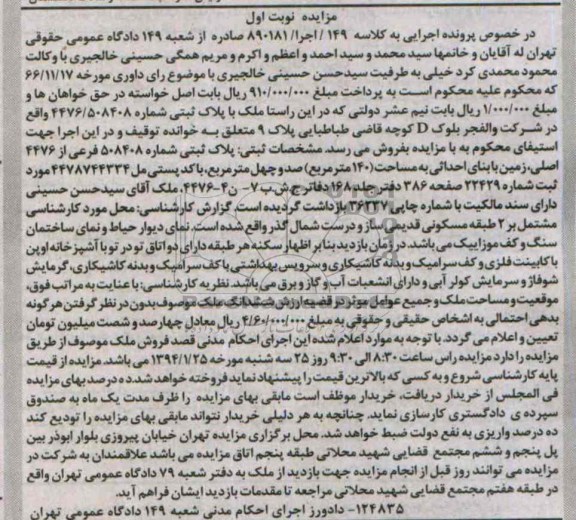 مزایده نوبت اول
در خصوص پرونده اجرایی به کلاسه ۱۴۹ / اجرا/ ۸۹۰۱۸۱ صادره از شعبه ۱۴۹ دادگاه عمومی حقوقی
تهران له آقایان و خانمها سید محمد و سید احمد و اعظم و اکرم و مریم همگی حسینی خالجیری با وکالت
محمود محمدی کرد خیلی به طرفیت سیدحسن حسینی خالجیری با موضوع رای داوری مورخه ۶۶/۱۱/۱۷
که محکوم علیه محکوم است به پرداخت مبلغ ۹۱۰/۰۰۰/۰۰۰ ریال بابت اصل خواسته در حق خواهان ها و
مبلغ ۱/۰۰۰/۰۰۰ ریال بابت نیم عشر دولتی که در این راستا ملک با پلاک ثبتی شماره ۴۴۷۶/۵۰۸۴۰۸ واقع
در شرکت والفجر بلوک D کوچه قاضی طباطبایی پلاک ۹ متعلق به خوانده توقیف و در این اجرا جهت
استیفای محکوم به با مزایده بفروش می رسد. مشخصات ثبتی: پلاک ثبتی شماره ۵۰۸۴۰۸ فرعی از ۴۴۷۶
اصلی، زمین با بنای احداثی به مساحت (۱۴۰ متر مربع) صد و چهل متر مربع، با کد پستی مل ۴۴۷۸۷۴۴۳۳۴ مورد
ثبت شماره ۲۲۴۲۹ صفحه ۳۸۶ دفتر جلد ۱۶۸ دفاتر ج ش ب ۷- ن ۴-۴۴۷۶، ملک آقای سیدحسن حسینی
دارای سند مالکیت با شماره چاپی ۳۶۲۳۷ بازداشت گردیده است. گزارش کارشناسی: محل مورد کارشناسی
مشتمل بر ۲ طبقه مسکونی قدیمی ساز و درست شمال گذر واقع شده است. نمای دیوار حیاط و نمای ساختمان
سنگ و کف موزاییک می باشد. در زمان بازدید بنا بر اظهار سکنه هر طبقه دارای دو اتاق تو در تو با آشپزخانه اوپن
با کابینت فلزی و کف سرامیک و بدنه کاشیکاری و سرویس بهداشتی با کف سرامیک و بدنه کاشیکاری، گرمایش
شوفاژ و سرمایش کولر آبی و دارای انشعبات آب و گاز و برق می باشد. نظریه کارشناسی: با عنایت به مراتب فوق،
موقعیت و مساحت ملک و جمیع عوامل موثر در قضیه ارزش ششدانگ ملک موصوف بدون در نظر گرفتن هر گونه
بدهی احتمالی به اشخاص حقیقی و حقوقی به مبلغ ۴/۶۰۰/۰۰۰/۰۰۰ ریال معادل چهارصد و شصت میلیون تومان
تعیین و اعلام می گردد. با توجه به موارد اعلام شده این اجرای احکام مدنی قصد فروش ملک موصوف از طریق
مزایده را دارد مزایده راس ساعت ۸:۳۰ الی ۹:۳۰ روز ۲۵ سه شنبه مورخه ۱۳۹۴/۱/۲۵ می باشد. مزایده از قیمت
پایه کارشناسی شروع و به کسی که بالاترین قیمت را پیشنهاد نماید فروخته خواهد شد. ده درصد بهای مزایده
فی المجلس از خریدار دریافت، خریدار موظف است مابقی بهای مزایده را ظرف مدت یک ماه به صندوق
سپرده ی دادگستری کارسازی نماید. چنانچه به هر دلیلی خریدار نتواند مابقی بهای مزایده را تودیع کند
ده درصد واریزی به نفع دولت ضبط خواهد شد. محل برگزاری مزایده تهران خیابان پیروزی بلوار ابوذر بین
پل پنجم و ششم مجتمع قضایی شهید محلاتی طبقه پنجم اتاق مزایده می باشد علاقمندان به شرکت در
مزایده می توانند روز قبل از انجام مزایده جهت بازدید از ملک به دفتر شعبه ۷۹ دادگاه عمومی تهران واقع
در طبقه هفتم مجتمع قضایی شهید محلاتی مراجعه تا مقدمات بازدید ایشان فراهم آید.
۱۲۴۸۳۵- دادورز اجرای احکام مدنی شعبه ۱۴۹ دادگاه عمومی تهران